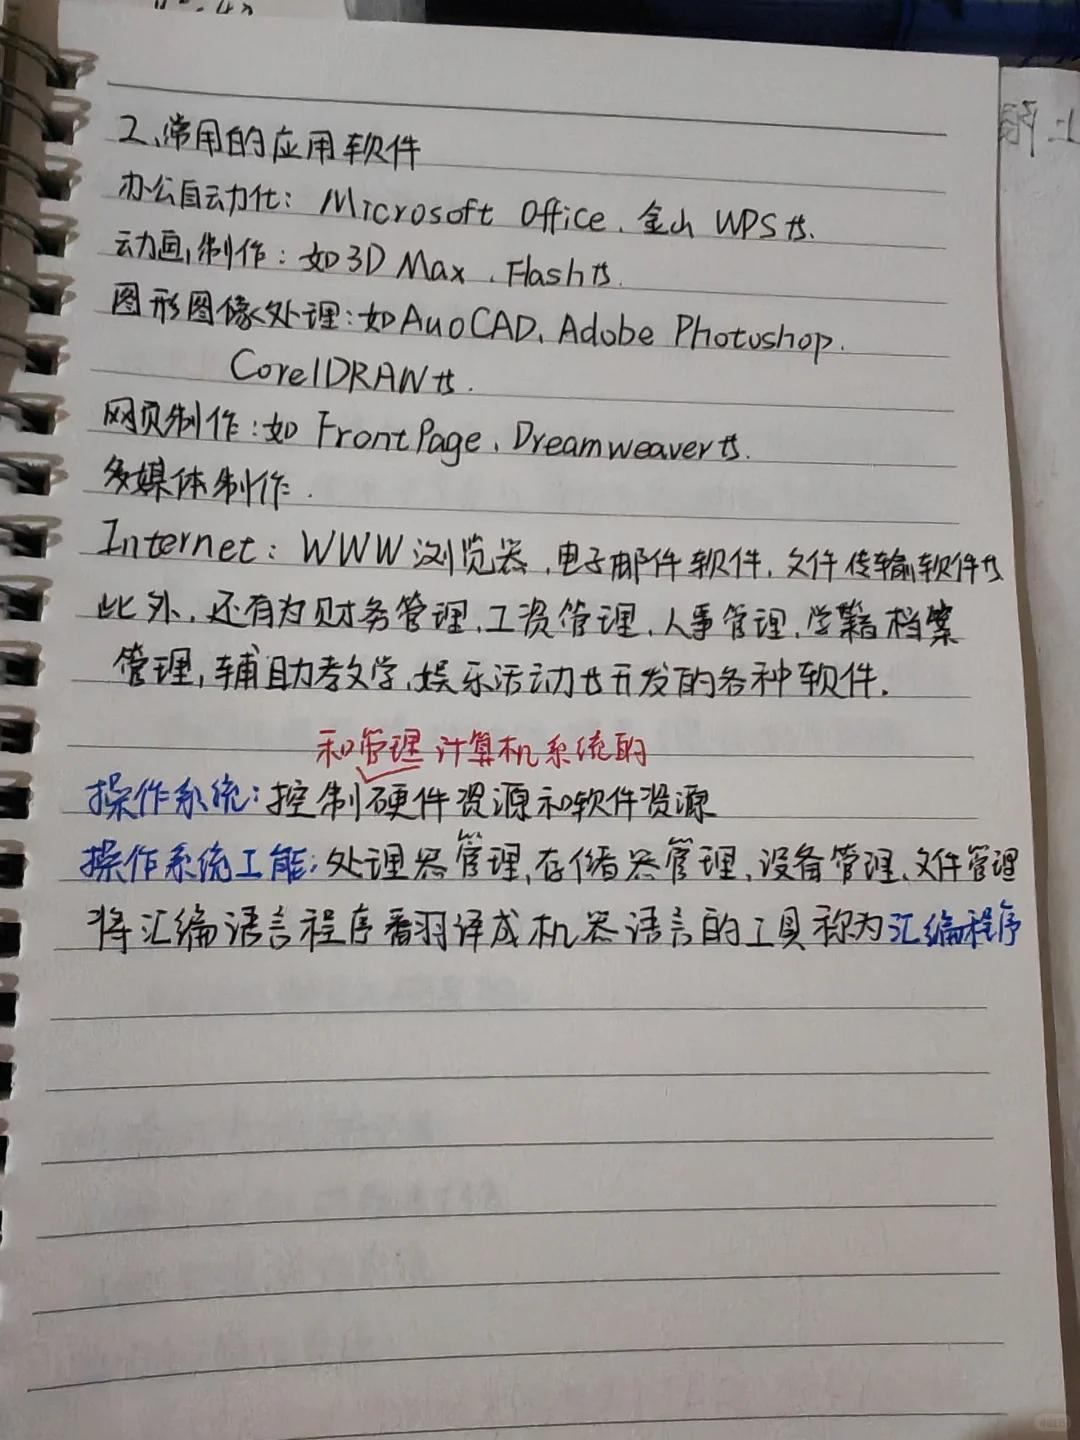 2、常用的应用软件
办公自动化：Microsoft Office、金山 WPS等.
动画制作：如3D Max、Flash等.
图形图像处理：如AuoCAD、Adobe Photoshop.
CorelDRAW等.
网页制作：如 FrontPage、Dreamweaver等.
多媒体制作.
Internet：WWW浏览器、电子邮件软件、文件传输软件等
此外，还有为财务管理、工资管理、人事管理、学籍档案
管理，辅助教学、娱乐活动等开发的各种软件.
和管理计算机系统的
操作系统：控制硬件资源和软件资源
操作系统工能：处理器管理、存储器管理、设备管理、文件管理
将汇编语言程序翻译成机器语言的工具称为汇编程序